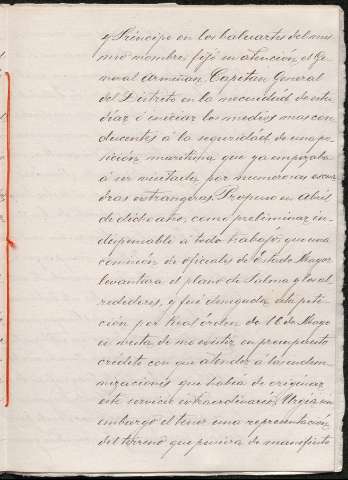 y Príncipe en los baluartes del mis
mo nombre, fijó su atención el Ge
neral Armiñan Capitan General
del Distrito en la necesidad de estu
diar ó iniciar los medios mas con
ducentes á la seguridad de una po
sición marítima que ya empezaba
á ser visitada por numerosas escua
dras extrangeras. Propuso en Abril
de dicho año, como preliminar in-
dispensable á todo trabajo, que una
comisión de oficiales de Estado Mayor
levantara el plano de Palma y los al
rededores, y fué denegada esta peti
ción por Real órden de 16 de Mayo
en vista de no existir en presupuesto
crédito con que atender á las indem
nizaciones que habia de originar
este servicio extraordinario. Urgia sin
embargo el tener una representación
del terreno que pusiera de manifiesto